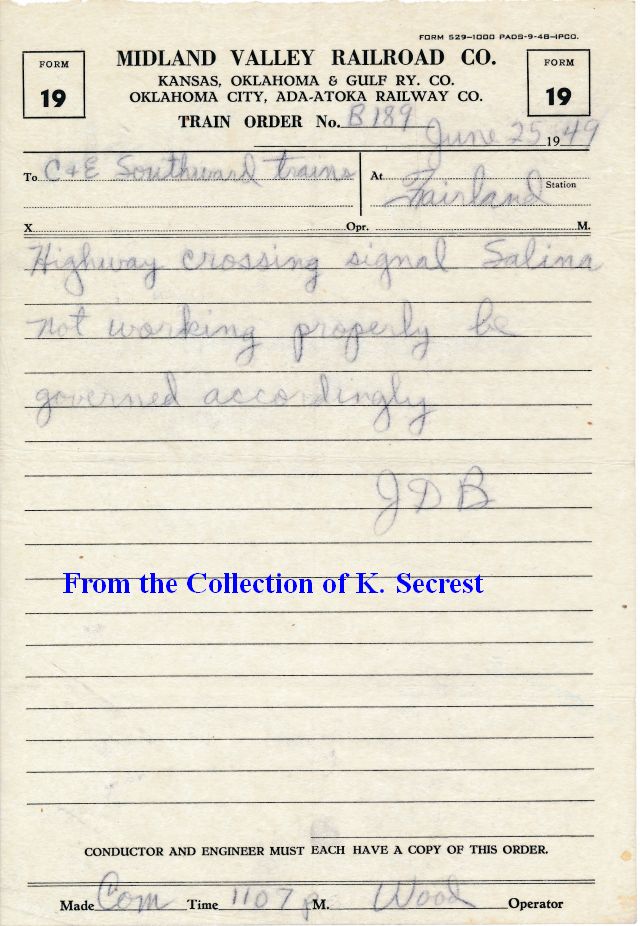 FORM 529-1000 PADS-9-48-IPCO.
FORM 19
MIDLAND VALLEY RAILROAD CO.
FORM 19
KANSAS, OKLAHOMA & GULF RY. CO.
OKLAHOMA CITY, ADA-ATOKA RAILWAY CO.
TRAIN ORDER No. B189
June 25 1949
To C&E Southward trains
At Fairland Station
X Opr. M.
Highway crossing signal Salina
not working properly be
governed accordingly
JDB
From the Collection of K. Secrest
CONDUCTOR AND ENGINEER MUST EACH HAVE A COPY OF THIS ORDER.
Made Com Time 1107 p M. Wood Operator